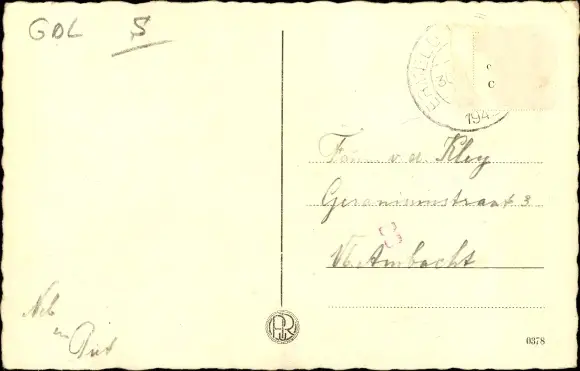 GDL S
194
Fam v. d. Kley
Geraniumstraat 3
Vl. Ambacht
en Piet
0378